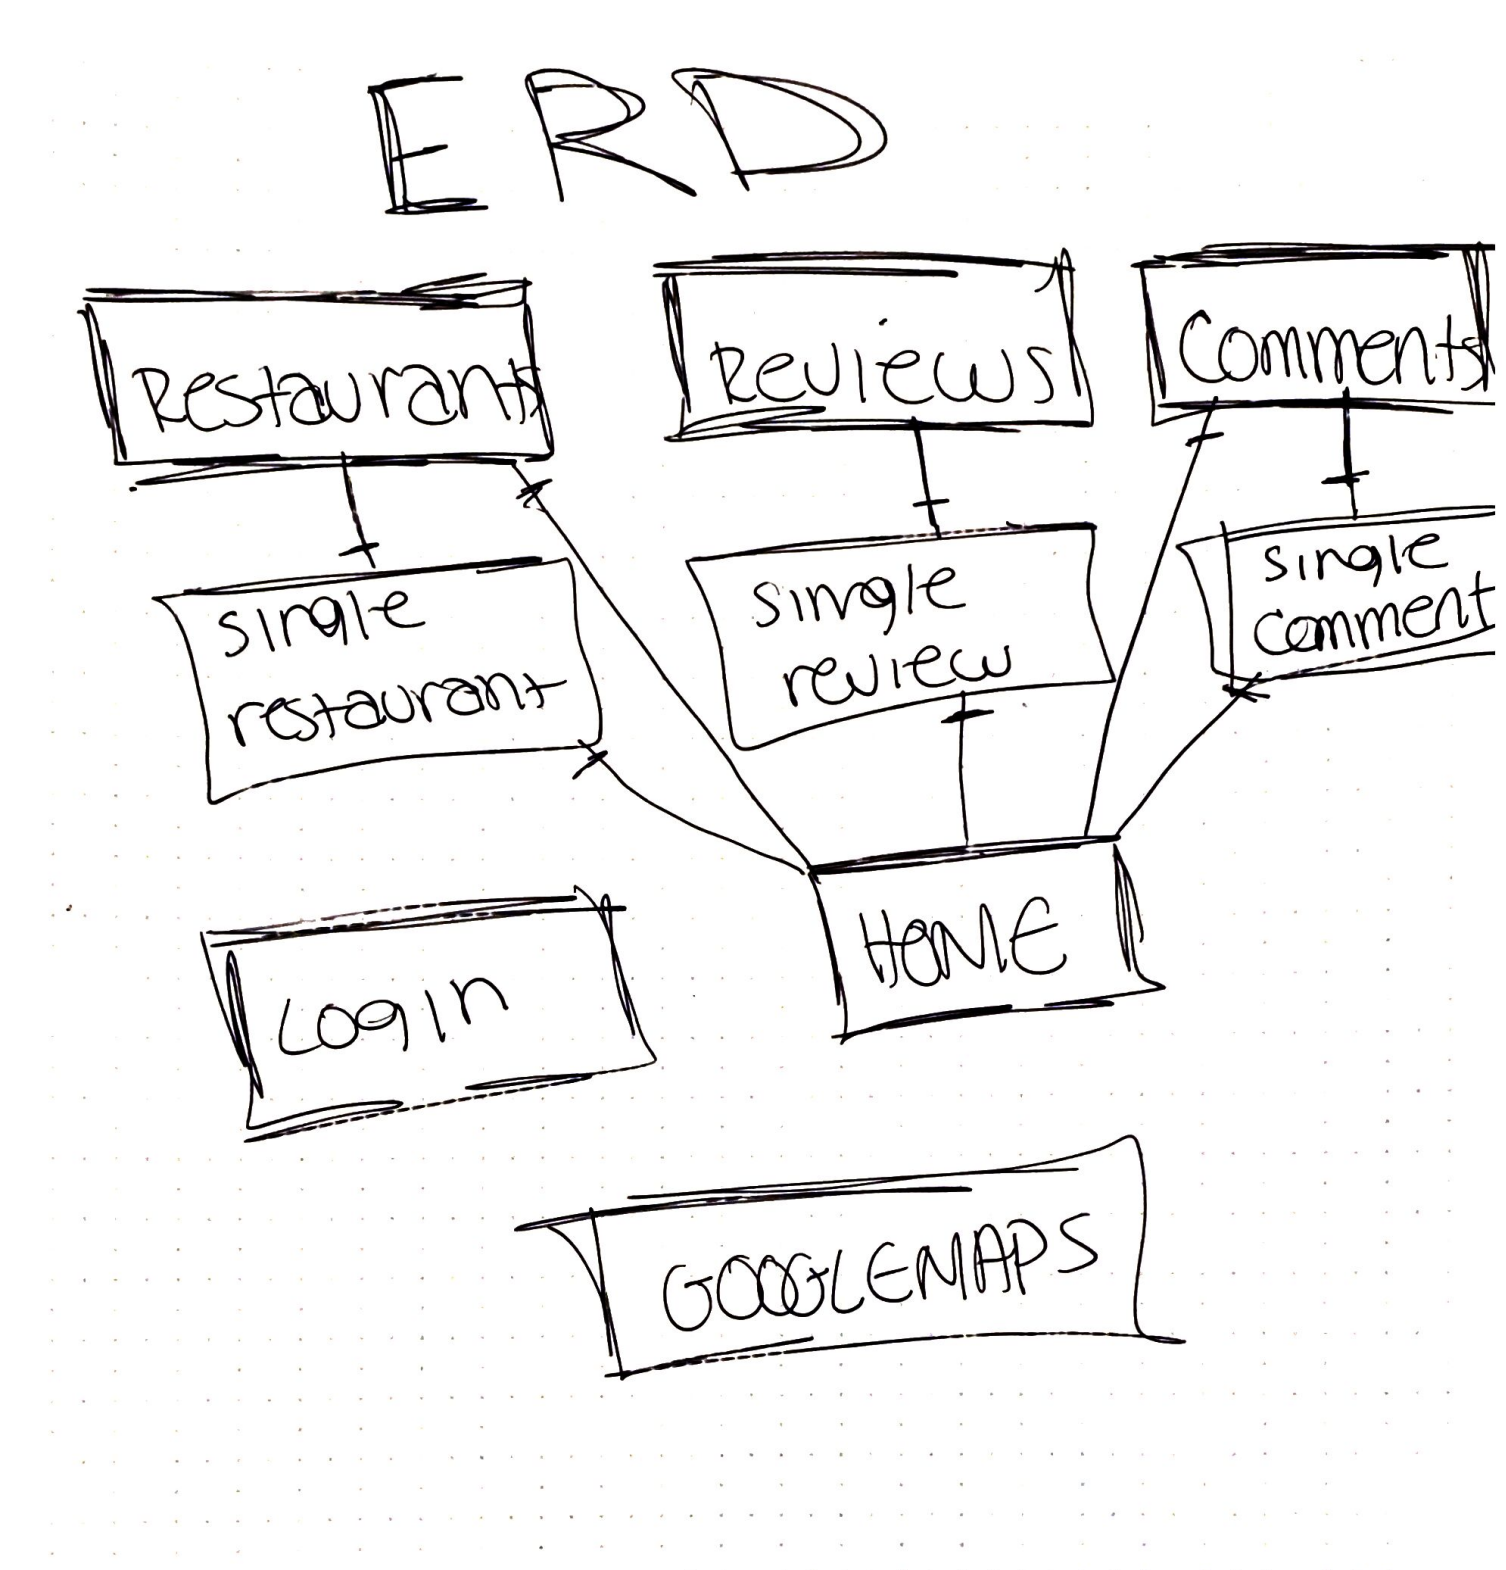 ERD
Restaurants
Reviews
Comments
single
restaurant
single
review
single
comment
HOME
Login
GOOGLEMAPS